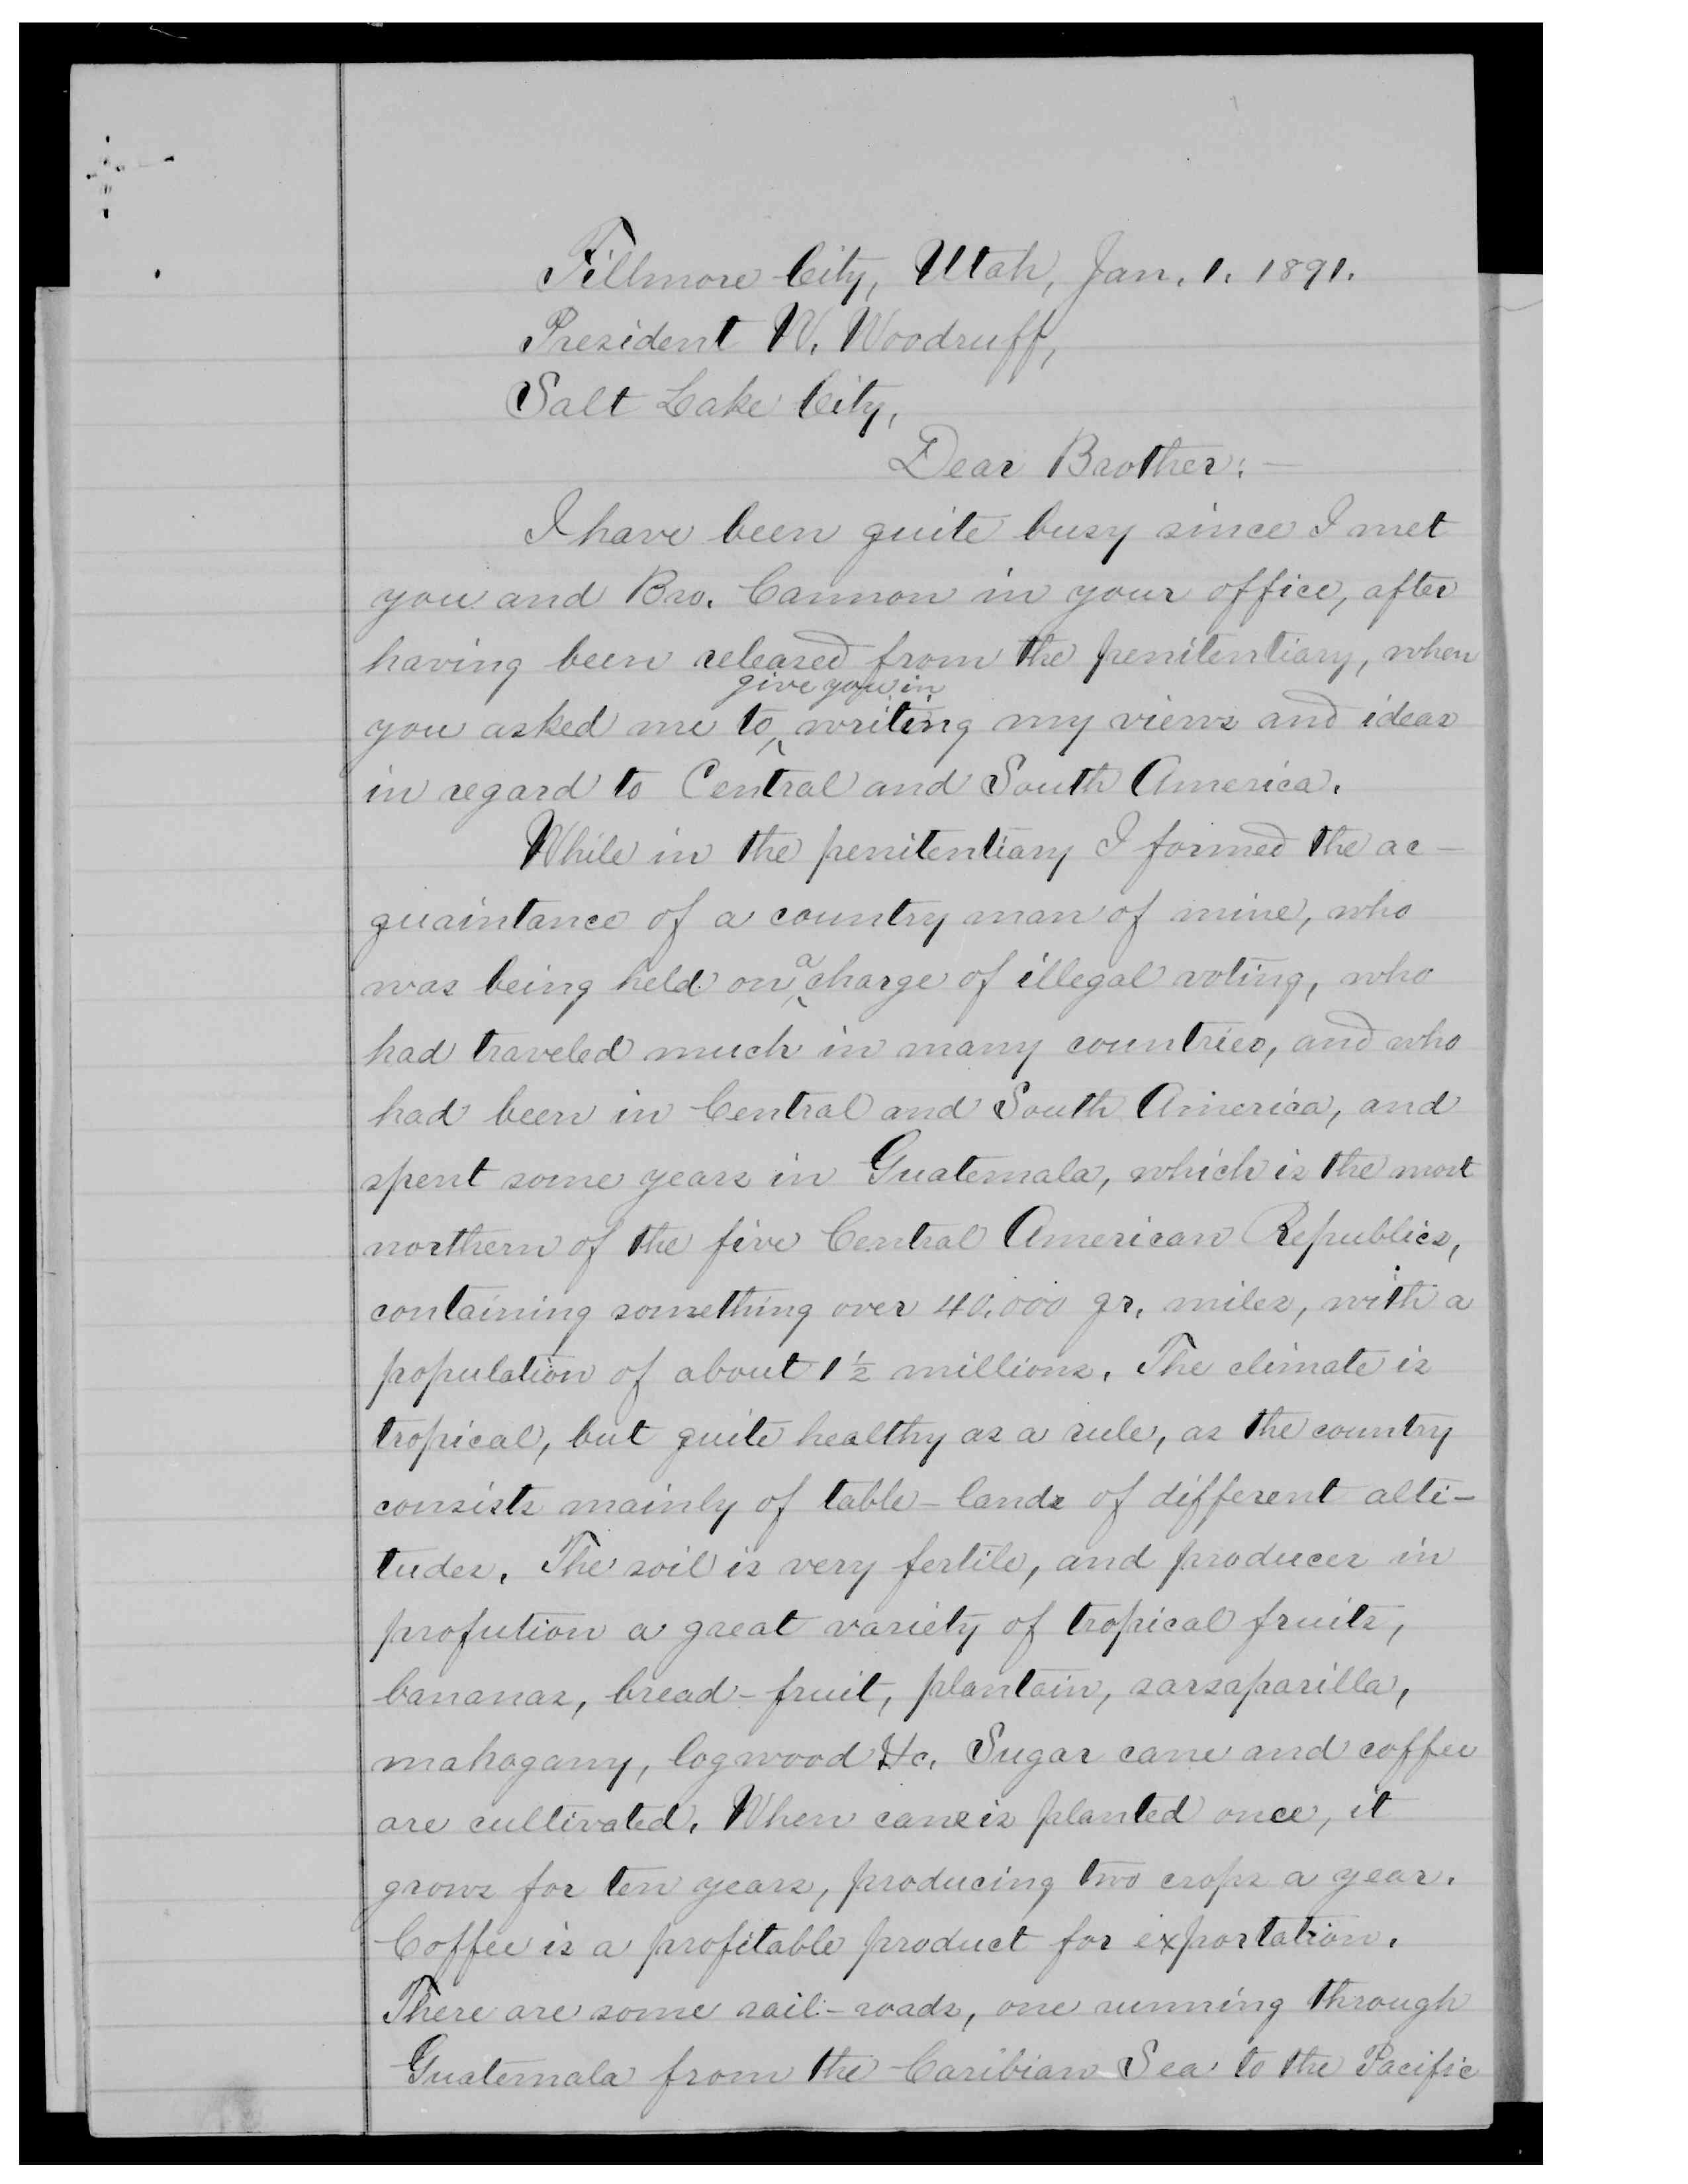 Fillmore City, Utah, Jan. 1. 1891.
President W. Woodruff,
Salt Lake City,
Dear Brother:—
I have been quite busy since I met
you and Bro. Cannon in your office, after
having been released from the penitentiary, when
give you in
you asked me to ‸ writing my views and ideas
in regard to Central and South America.
While in the penitentiary I formed the ac-
quaintance of a country man of mine, who
was being held on ‸a charge of illegal voting, who
had traveled much in many countries, and who
had been in Central and South America, and
spent some years in Guatemala, which is the most
northern of the five Central American Republics,
containing something over 40.000 qr. miles, with a
population of about 1½ millions. The climate is
tropical, but quite healthy as a rule, as the country
consists mainly of table-lands of different alti-
tudes. The soil is very fertile, and produces in
profution a great variety of tropical fruits,
bananas, bread-fruit, plantain, sarsaparilla,
mahogany, logwood &c. Sugar cane and coffee
are cultivated. When cane is planted once, it
grows for ten years, producing two crops a year.
Coffee is a profitable product for exportation.
There are some rail-roads, one running through
Guatemala from the Caribian Sea to the Pacific